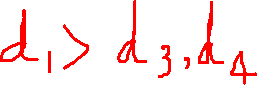 d₁ > d₃, d₄